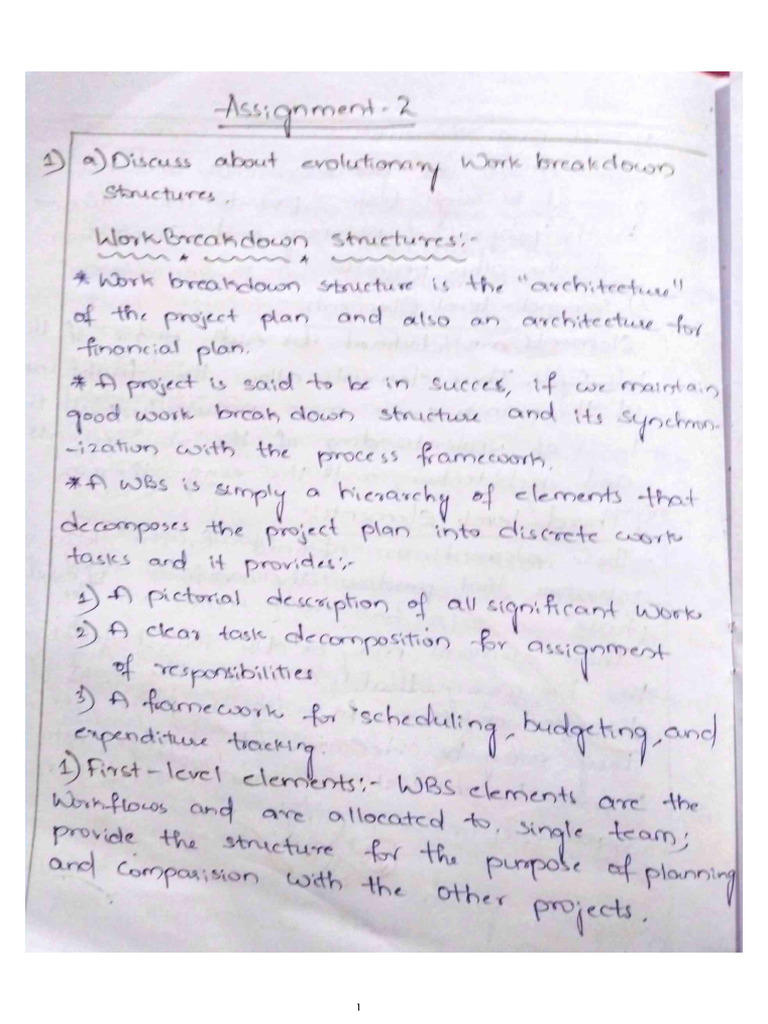 Assignment-2
1) a) Discuss about evolutionary Work breakdown
structures.
Work Breakdown structures:-
* Work breakdown structure is the "architecture"
of the project plan and also an architecture for
financial plan.
* A project is said to be in succes, if we maintain
good work break down structure and its synchron-
-ization with the process framework.
* A WBS is simply a hierarchy of elements that
decomposes the project plan into discrete work
tasks and it provides:-
1) A pictorial description of all significant work
2) A clear task decomposition for assignment
of responsibilities
3) A framework for scheduling, budgeting, and
expenditure tracking.
1) First-level elements:- WBS elements are the
Workflows and are allocated to single team;
provide the structure for the purpose of planning
and comparision with the other projects.
1